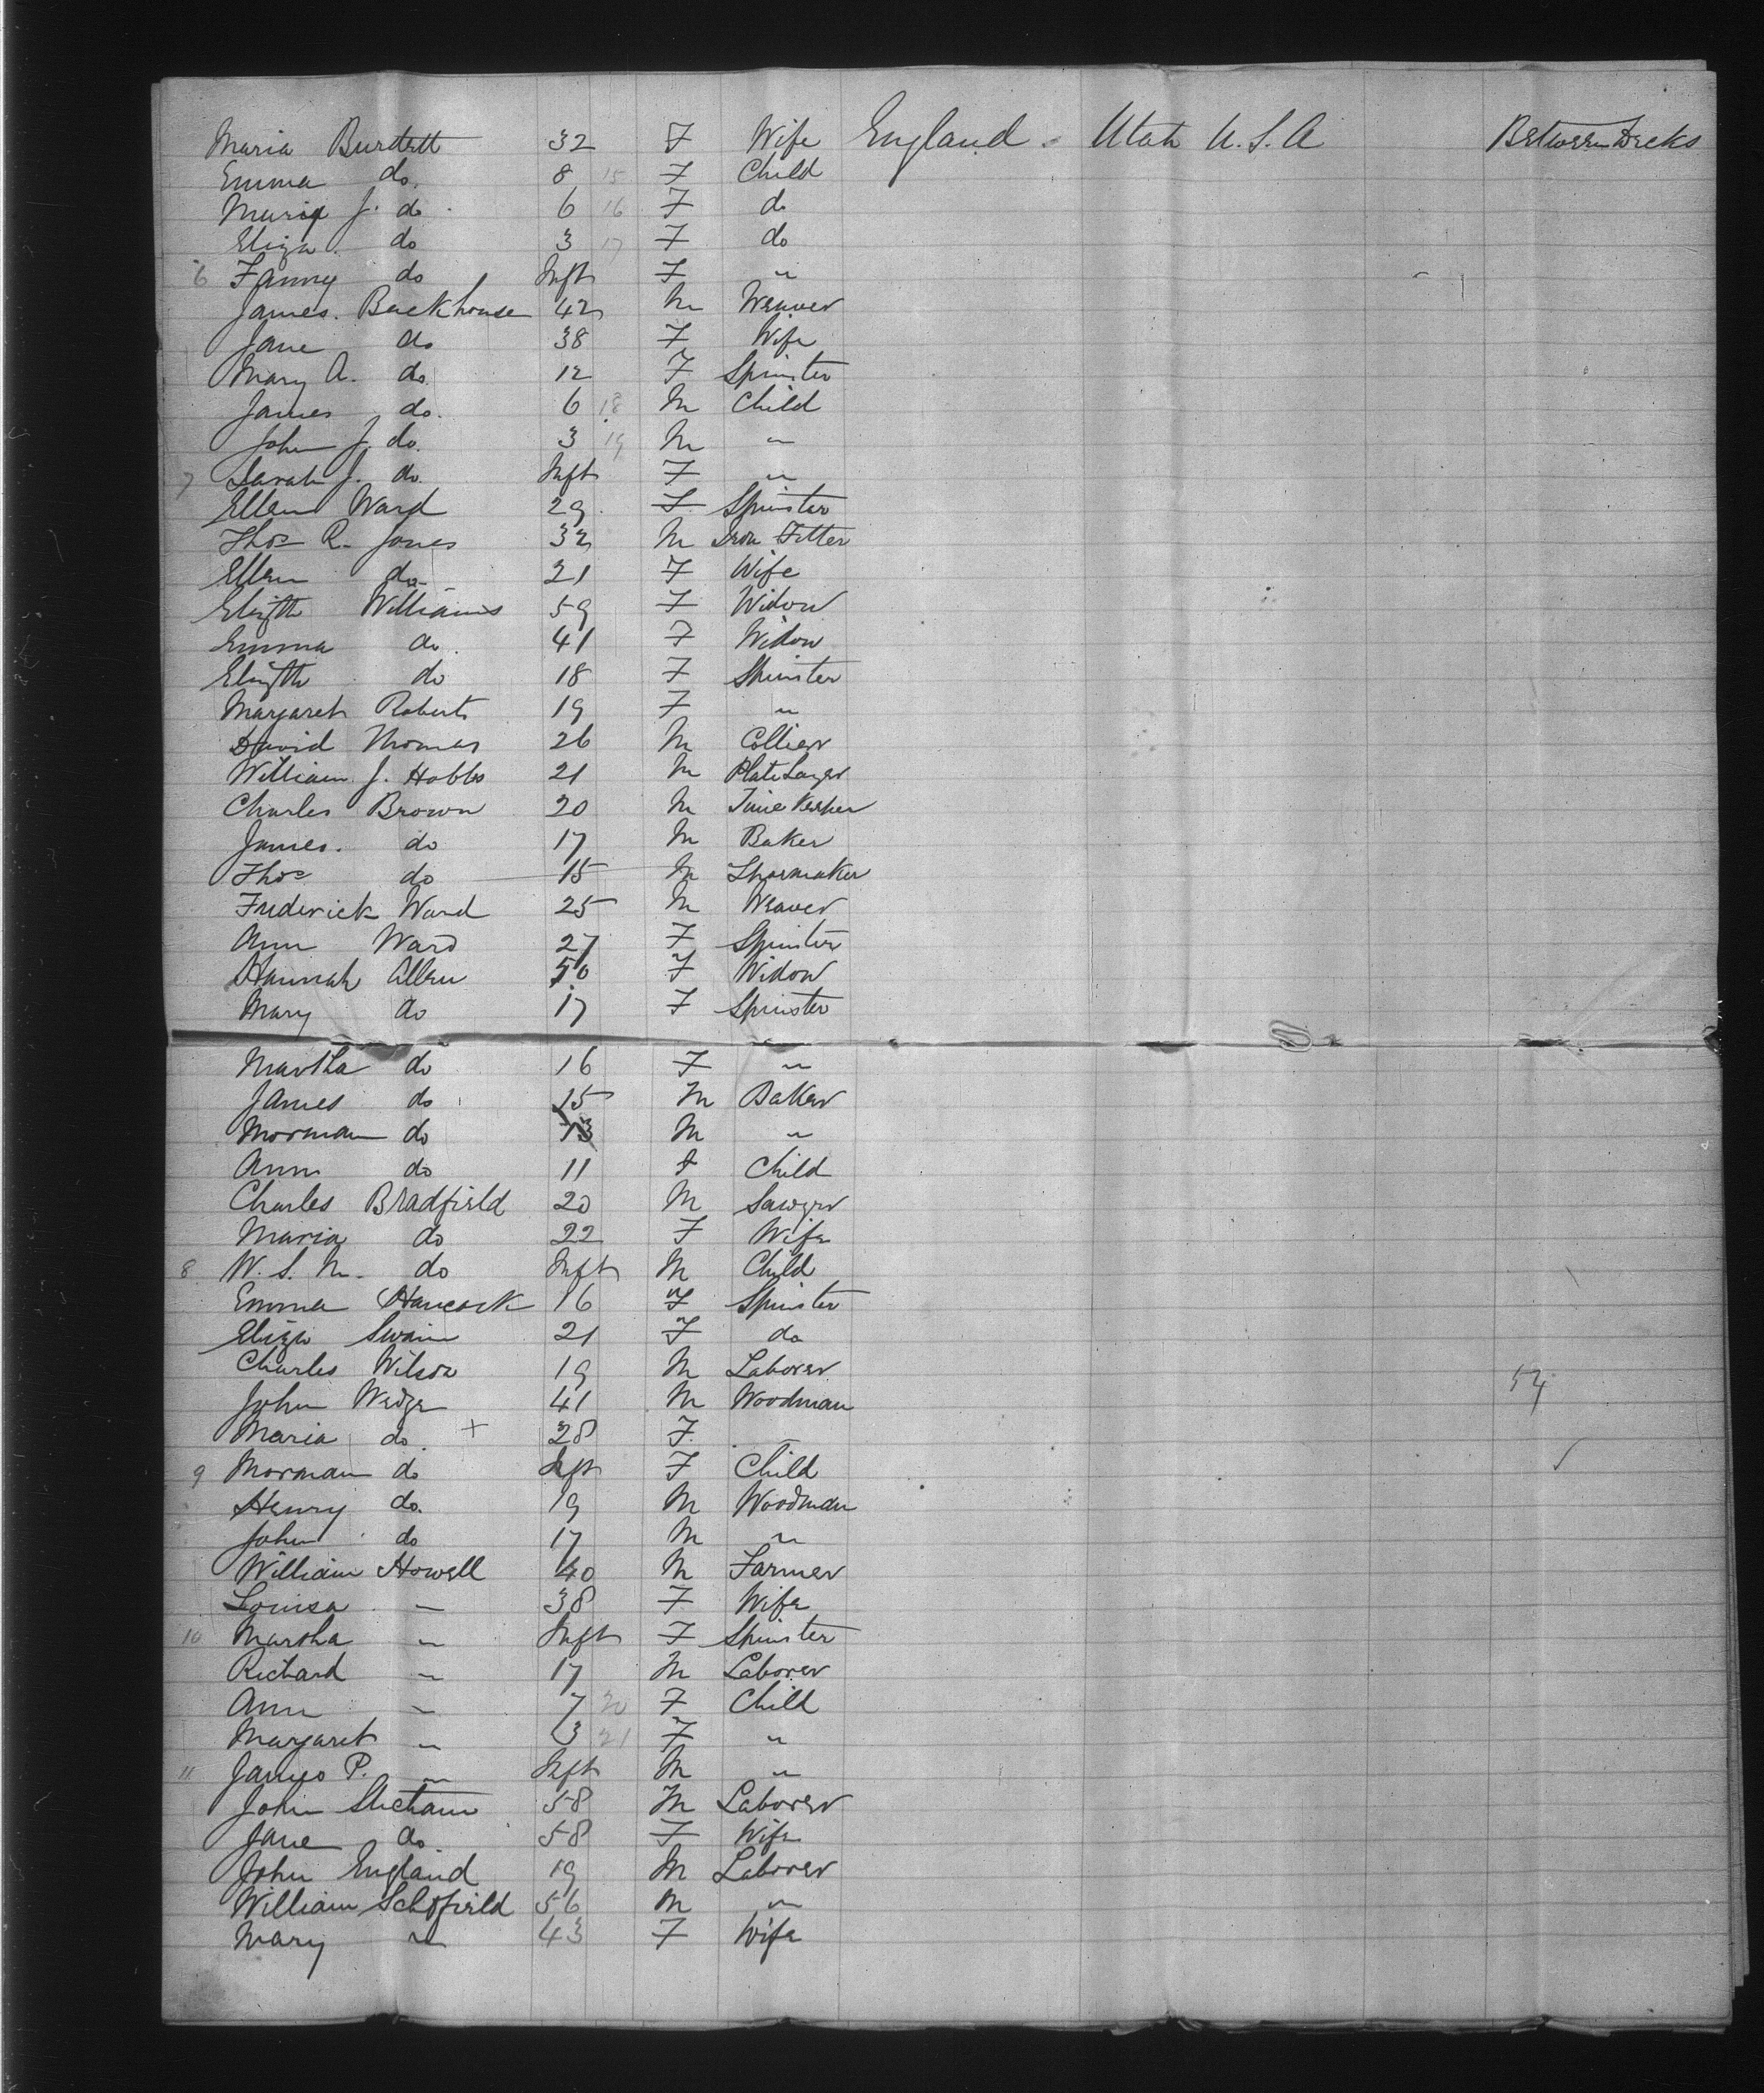 Maria Burdett 32 F Wife England Utah U.S.A Between Decks
Emma do. 8 15 F Child
Maria J. do 6 16 F do
Eliza do 3 17 F do
6 Fanny do Inft F "
James Backhouse 42 M Weaver
Jane do 38 F Wife
Mary A. do. 12 F Spinster
James do. 6 18 M Child
John J. do. 3 19 M "
7 Sarah J. do. Inft F "
Ellen Ward 29 F Spinster
Thos R. Jones 32 M Iron Fitter
Ellen do 21 F Wife
Elizth Williams 59 F Widow
Emma do. 41 F Widow
Elizth do 18 F Spinster
Margaret Roberts 19 F "
David Thomas 26 M Collier
William J. Hobbs 21 M Plate Layer
Charles Brown 20 M Time Keeper
James. do 17 M Baker
Thos do 15 M Shoemaker
Frederick Ward 25 M Weaver
Ann Ward 27 F Spinster
Hannah Allen 50 F Widow
Mary do 17 F Spinster
Martha do 16 F "
James do 15 M Baker
Morman do 13 M "
Ann do 11 f Child
Charles Bradfield 20 M Sawyer
Maria do 22 F Wife
8 W. S. M. do Inft M Child
Emma Hancock 16 F Spinster
Eliza Swain 21 F do
Charles Wilson 19 M Laborer
John Wedge 41 M Woodman 54
Maria do. + 28 F
9 Morman do Inft F Child
Henry do. 19 M Woodman
John do 17 M "
William Howell 40 M Farmer
Louisa " 38 F Wife
10 Martha " Inft F Spinster
Richard " 17 M Laborer
Ann " 7 20 F Child
Margaret " 3 21 F "
11 James P. " Inft M "
John 58 M Laborer
Jane do 58 F Wife
John England 19 M Laborer
William Schofield 56 M "
Mary " 43 F Wife